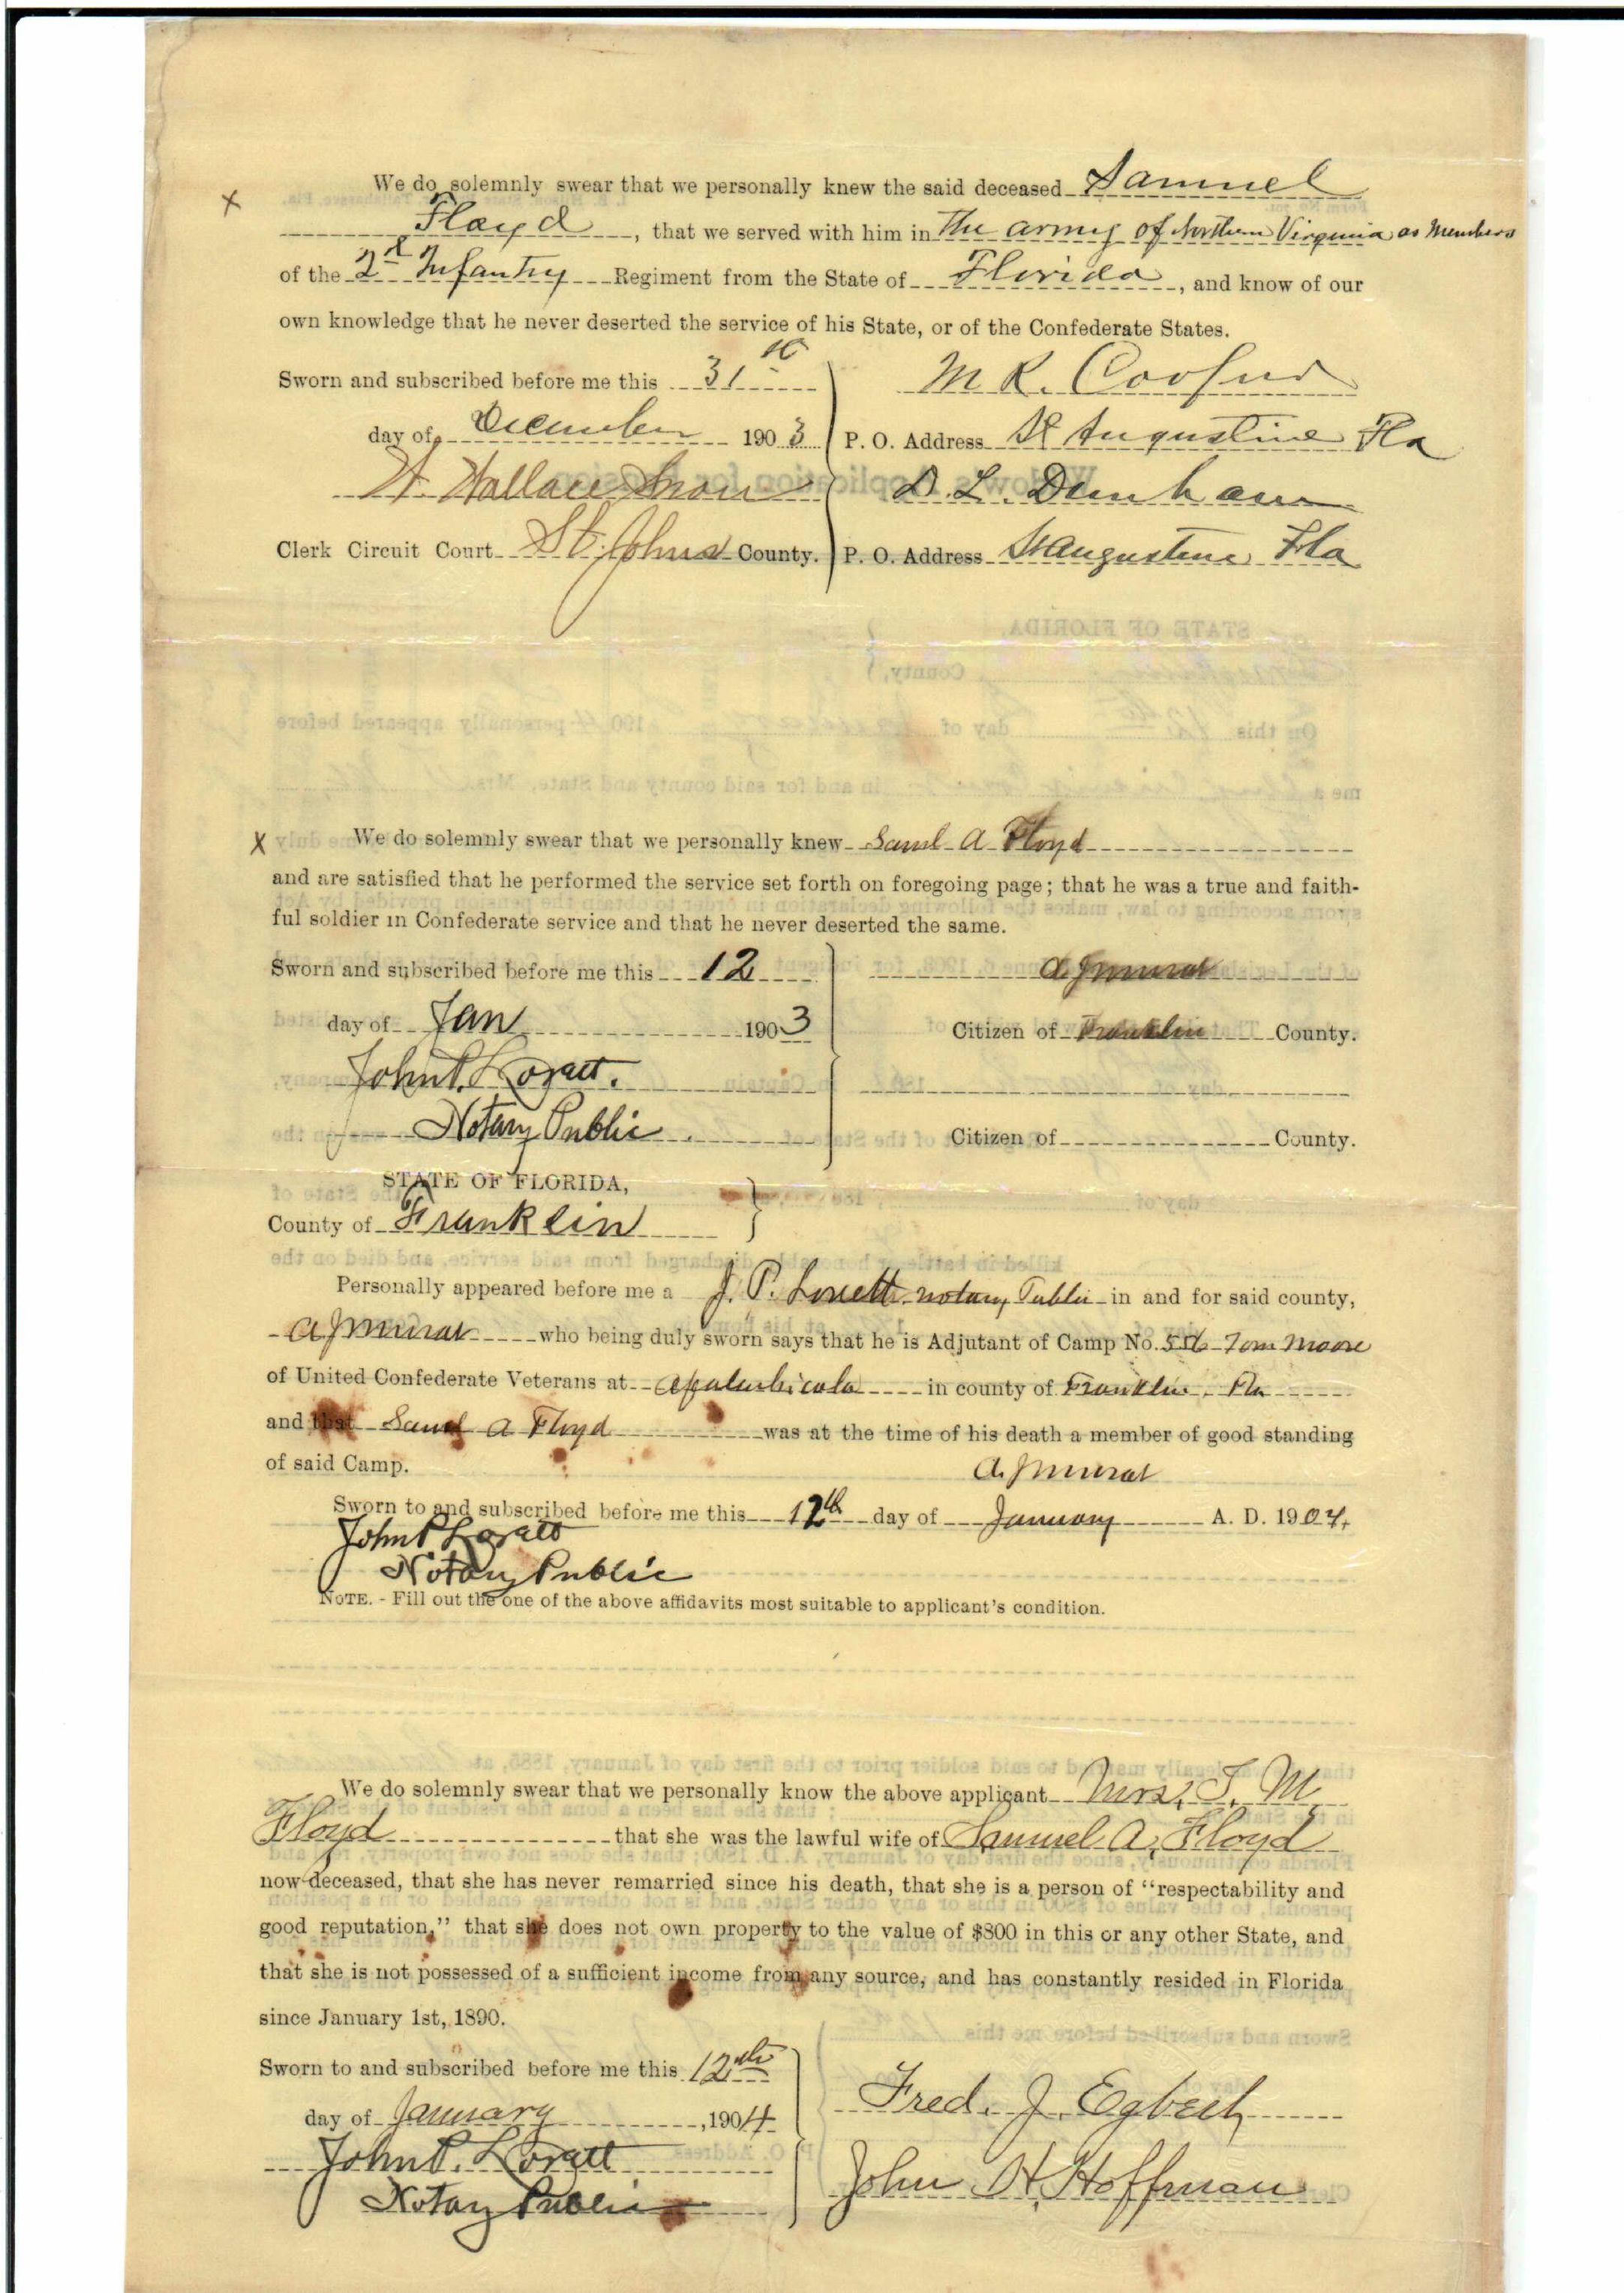 We do solemnly swear that we personally knew the said deceased Samuel
Floyd, that we served with him in The army of Northern Virginia as Members
of the 2d Infantry Regiment from the State of Florida, and know of our
own knowledge that he never deserted the service of his State, or of the Confederate States.
Sworn and subscribed before me this 31st
day of December 1903
M R. Cooper
P. O. Address St Augustine Fla
Wallace Snow
D. L. Dunham
Clerk Circuit Court St. Johns County.
P. O. Address St Augustine Fla
X We do solemnly swear that we personally knew Saml A Floyd
and are satisfied that he performed the service set forth on foregoing page; that he was a true and faith-
ful soldier in Confederate service and that he never deserted the same.
Sworn and subscribed before me this 12
A J Murat
day of Jan 1903
Citizen of Franklin County.
John P. Lovett.
Notary Public.
Citizen of County.
STATE OF FLORIDA,
County of Franklin
Personally appeared before me a J. P. Lovett notary Public in and for said county,
A J Murat who being duly sworn says that he is Adjutant of Camp No. 556 Tom Moore
of United Confederate Veterans at Apalachicola in county of Franklin, Fla
and that Saml A Floyd was at the time of his death a member of good standing
of said Camp.
A. J Murat
Sworn to and subscribed before me this 12th day of January A. D. 1904,
John P Lovett
Notary Public
NOTE. - Fill out the one of the above affidavits most suitable to applicant's condition.
We do solemnly swear that we personally know the above applicant Mrs. T. M.
Floyd that she was the lawful wife of Samuel A. Floyd
now deceased, that she has never remarried since his death, that she is a person of “respectability and
good reputation,” that she does not own property to the value of $800 in this or any other State, and
that she is not possessed of a sufficient income from any source, and has constantly resided in Florida
since January 1st, 1890.
Sworn to and subscribed before me this 12th
day of January, 1904
Fred. J. Egbert
John P. Lovett
Notary Public
John H. Hoffman